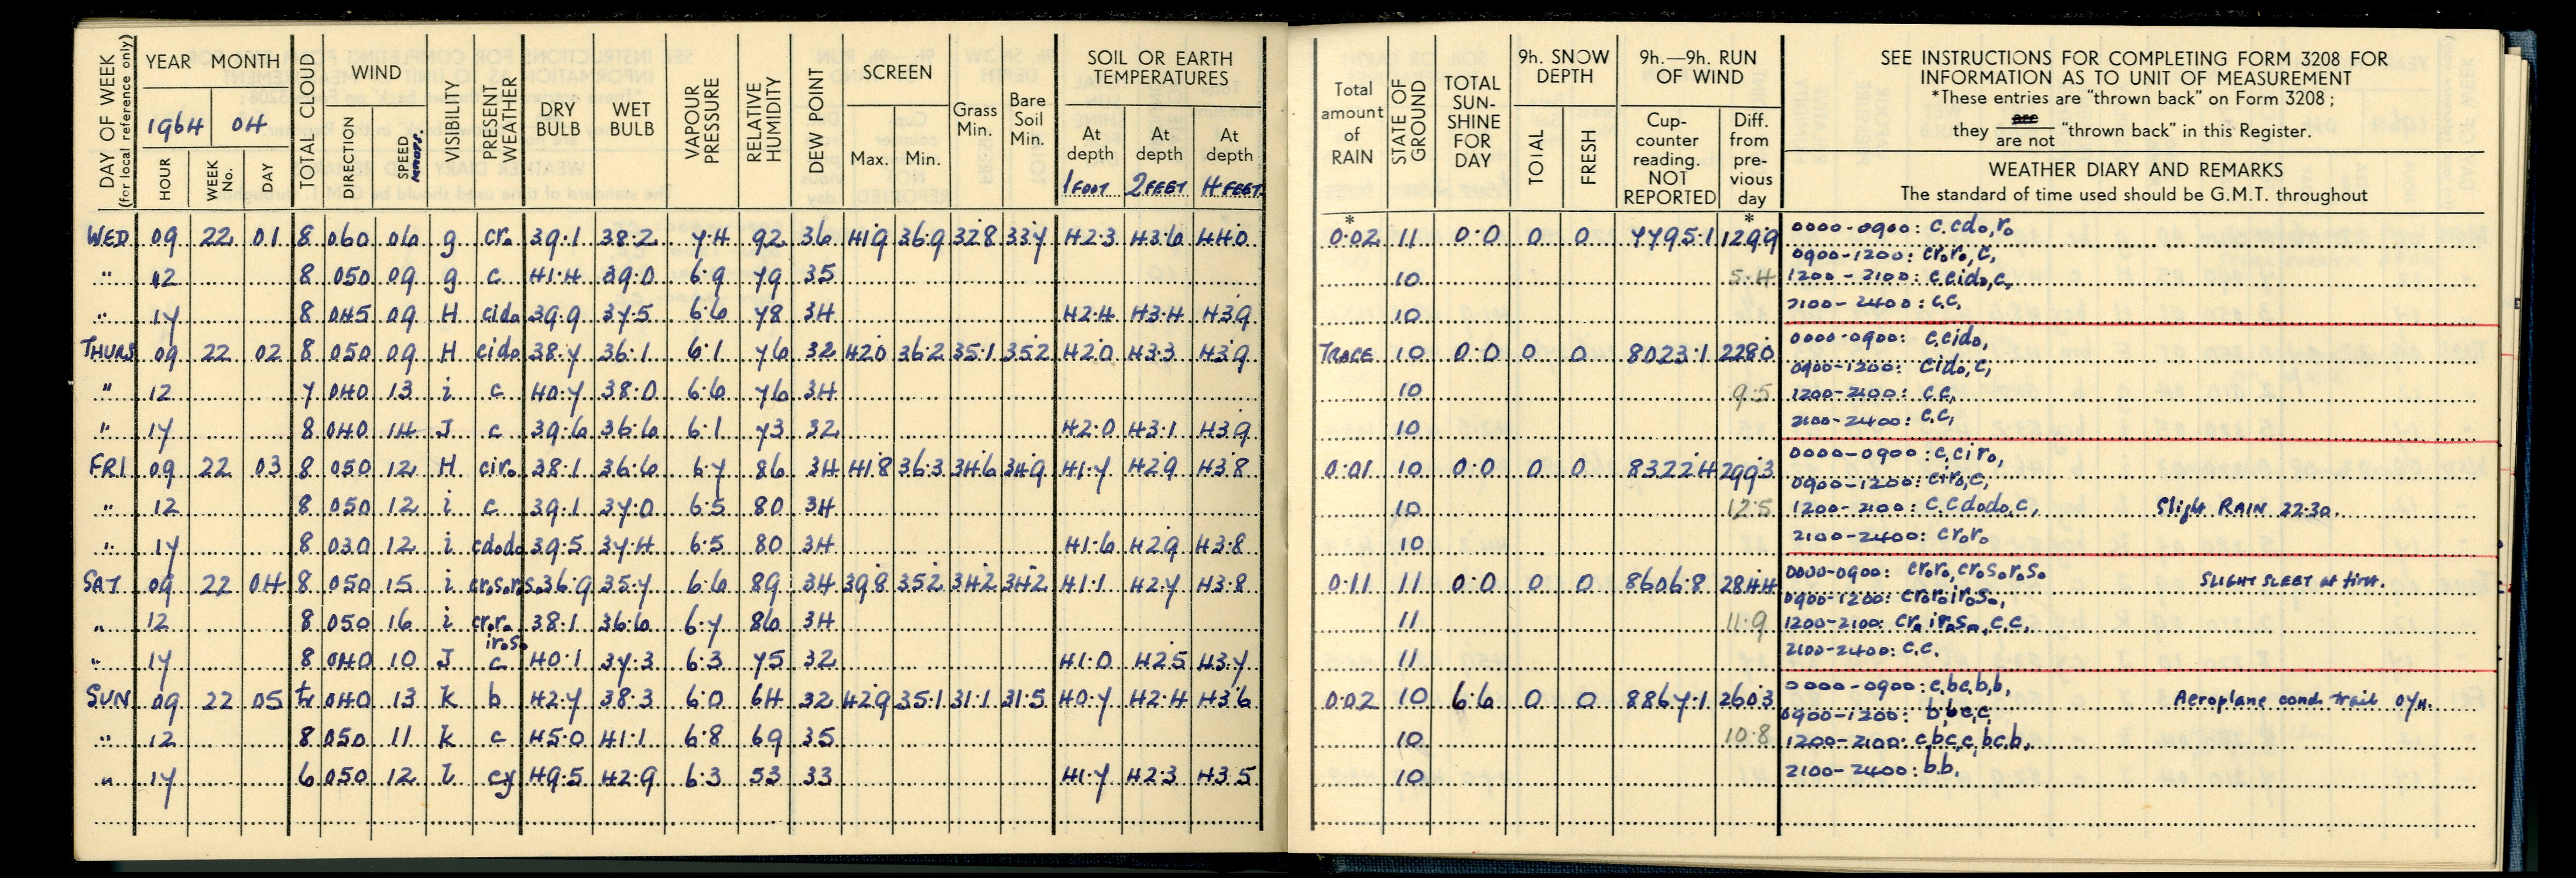 DAY OF WEEK
(for local reference only)
YEAR MONTH
1964 04
HOUR
WEEK No.
DAY
TOTAL CLOUD
WIND
DIRECTION
SPEED KNOTS.
VISIBILITY
PRESENT WEATHER
DRY BULB
WET BULB
VAPOUR PRESSURE
RELATIVE HUMIDITY
DEW POINT
SCREEN
Max. Min.
Grass Min.
Bare Soil Min.
SOIL OR EARTH TEMPERATURES
At depth 1 FOOT
At depth 2 FEET
At depth 4 FEET
WED 09 22 01 8 060 06 g cr₀ 39·1 38·2 7·4 92 36 41·9 36·9 32·8 33·7 42·3 43·6 44·0
" 12 8 050 09 g c 41·4 39·0 6·9 79 35
" 17 8 045 09 H cid₀ 39·9 37·5 6·6 78 34 42·4 43·4 43·9
THURS 09 22 02 8 050 09 H cid₀ 38·7 36·1 6·1 76 32 42·0 36·2 35·1 35·2 42·0 43·3 43·9
" 12 7 040 13 i c 40·7 38·0 6·6 76 34
" 17 8 040 14 J c 39·6 36·6 6·1 73 32 42·0 43·1 43·9
FRI 09 22 03 8 050 12 H cir₀ 38·1 36·6 6·7 86 34 41·8 36·3 34·6 34·9 41·7 42·9 43·8
" 12 8 050 12 i c 39·1 37·0 6·5 80 34
" 17 8 030 12 i cd₀d₀ 39·5 37·4 6·5 80 34 41·6 42·9 43·8
SAT 09 22 04 8 050 15 i cr₀s₀r₀s₀ 36·9 35·7 6·6 89 34 39·8 35·2 34·2 34·2 41·1 42·7 43·8
" 12 8 050 16 i cr₀r₀ ir₀s₀ 38·1 36·6 6·7 86 34
" 17 8 040 10 J c 40·1 37·3 6·3 75 32 41·0 42·5 43·7
SUN 09 22 05 tr 040 13 k b 42·7 38·3 6·0 64 32 42·9 35·1 31·1 31·5 40·7 42·4 43·6
" 12 8 050 11 k c 45·0 41·1 6·8 69 35
" 17 6 050 12 l cy 49·5 42·9 6·3 53 33 41·7 42·3 43·5
Total amount of RAIN
STATE OF GROUND
TOTAL SUN-SHINE FOR DAY
9h. SNOW DEPTH
TOTAL
FRESH
9h.—9h. RUN OF WIND
Cup-counter reading. NOT REPORTED
Diff. from pre-vious day
SEE INSTRUCTIONS FOR COMPLETING FORM 3208 FOR
INFORMATION AS TO UNIT OF MEASUREMENT
*These entries are "thrown back" on Form 3208;
they are / are not "thrown back" in this Register.
WEATHER DIARY AND REMARKS
The standard of time used should be G.M.T. throughout
* *
0·02 11 0·0 0 0 7795·1 129·9 0000-0900: c,cd₀,r₀
0900-1200: cr₀r₀,c,
10 5·4 1200-2100: c,cid₀,c,
2100-2400: c,c,
10
TRACE 10 0·0 0 0 8023·1 228·0 0000-0900: c,cid₀,
0900-1200: cid₀,c,
10 9·5 1200-2100: c,c,
10 2100-2400: c,c,
0·01 10 0·0 0 0 8322·4 299·3 0000-0900: c,cir₀,
0900-1200: cir₀,c,
10 12·5 1200-2100: c,cd₀d₀,c, Sligh RAIN 2230.
10 2100-2400: cr₀r₀
0·11 11 0·0 0 0 8606·8 284·4 0000-0900: cr₀r₀,cr₀s₀r₀s₀ SLIGHT SLEET at time.
0900-1200: cr₀r₀ir₀s₀,
11 11·9 1200-2100: cr₀ir₀s₀,c,c,
11 2100-2400: c,c.
0·02 10 6·6 0 0 8867·1 260·3 0000-0900: c,bc,b,b, Aeroplane cond. trail 07H.
0900-1200: b,bc,c,
10 10·8 1200-2100: c,bc,c,bc,b,
10 2100-2400: b,b,